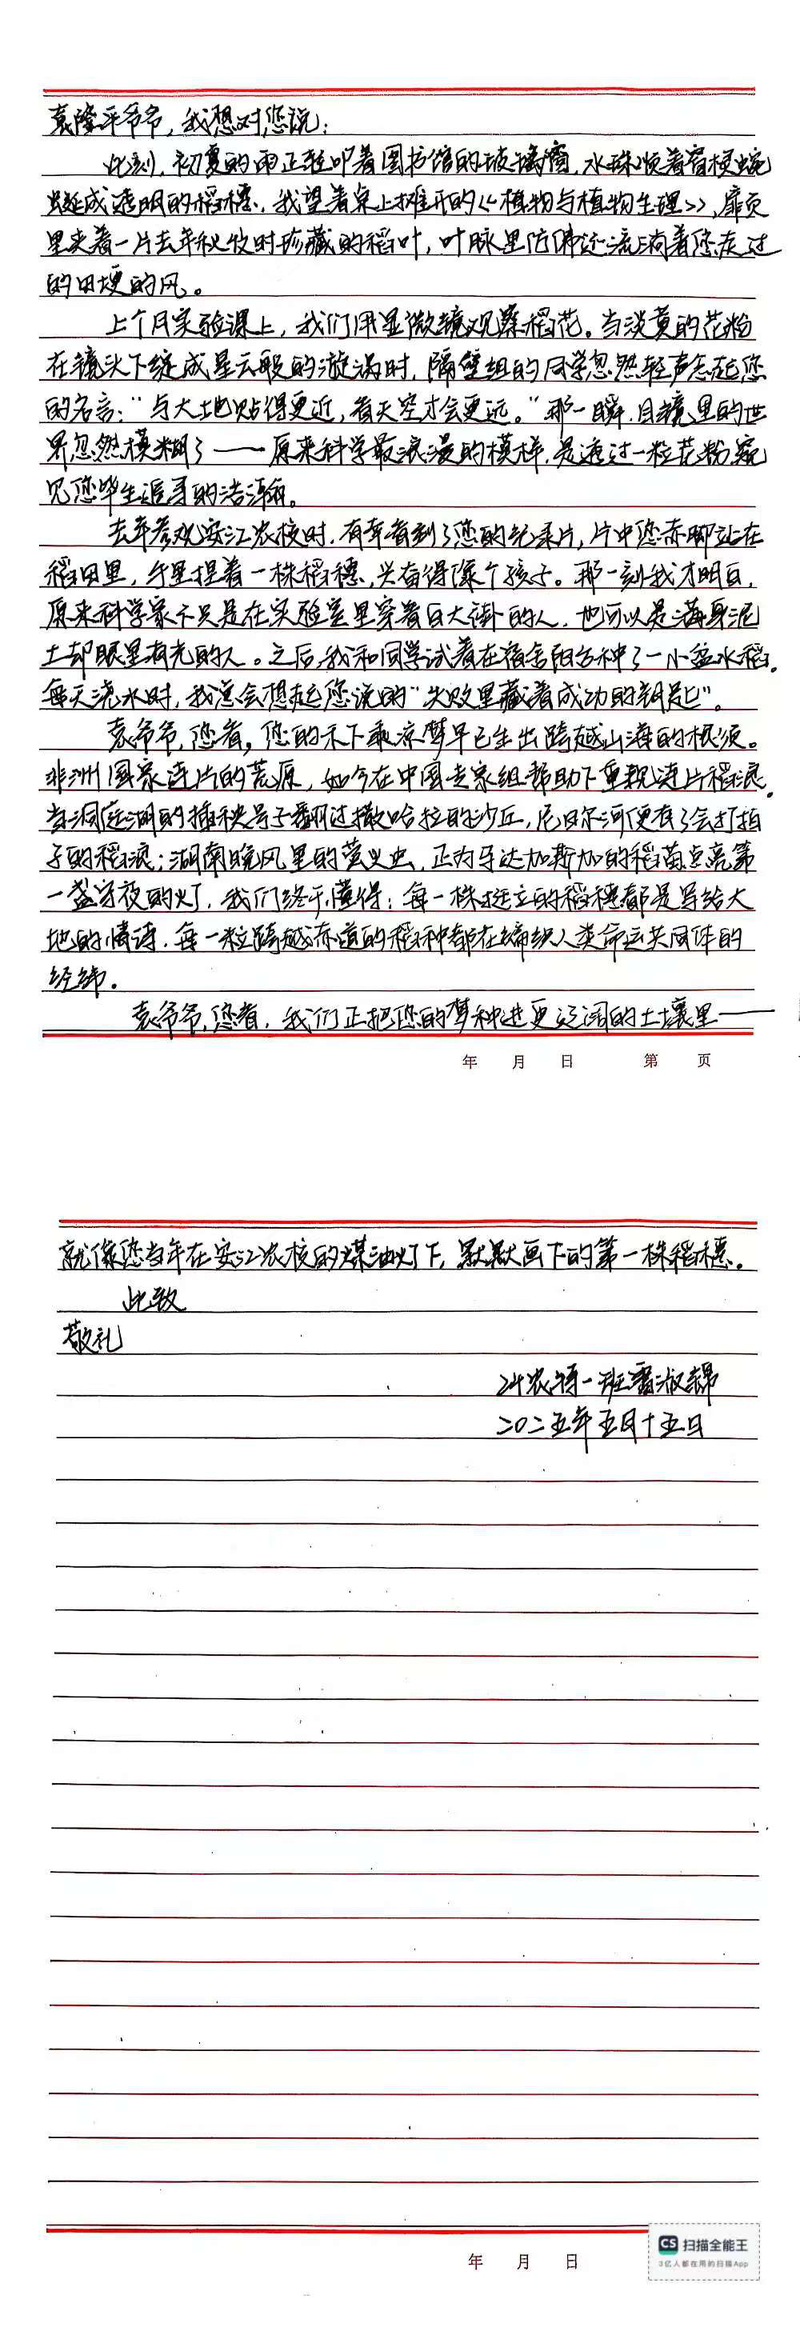 袁隆平爷爷，我想对您说：
此刻，初夏的雨正轻叩着图书馆的玻璃窗，水珠顺着窗棂蜿
蜒成透明的稻穗，我望着桌上摊开的《植物与植物生理》，扉页
里夹着一片去年秋收时珍藏的稻叶，叶脉里仿佛还流淌着您走过
的田埂的风。
上个月实验课上，我们用显微镜观察稻花。当淡黄的花粉
在镜头下绽成星云般的漩涡时，隔壁组的同学忽然轻声念起您
的名言：“与大地贴得更近，看天空才会更远。”那一瞬，目镜里的世
界忽然模糊了——原来科学最浪漫的模样，是透过一粒花粉，窥
见您毕生追寻的浩瀚。
去年参观安江农校时，有幸看到了您的纪录片，片中您赤脚站在
稻田里，手里捏着一株稻穗，兴奋得像个孩子。那一刻我才明白，
原来科学家不只是在实验室里穿着白大褂的人，也可以是满身泥
土却眼里有光的人。之后，我和同学试着在宿舍阳台种了一小盆水稻，
每天浇水时，我总会想起您说的“失败里藏着成功的钥匙”。
袁爷爷，您看，您的禾下乘凉梦早已生出跨越山海的根须。
非洲国家连片的荒原，如今在中国专家组帮助下重现连片稻浪。
当洞庭湖的插秧号子翻过撒哈拉的沙丘，尼日尔河便有了会打拍
子的稻浪；湖南晚风里的萤火虫，正为马达加斯加的稻苗点亮第
一盏守夜的灯，我们终于懂得：每一株挺立的稻穗都是写给大
地的情诗，每一粒跨越赤道的稻种都在编织人类命运共同体的
经纬。
袁爷爷，您看，我们正把您的梦种进更辽阔的土壤里——
年 月 日 第 页
就像您当年在安江农校的煤油灯下，默默画下的第一株稻穗。
此致
敬礼
24农特一班雷淑锦
二〇二五年五月十五日
年 月 日
CS 扫描全能王
3亿人都在用的扫描App